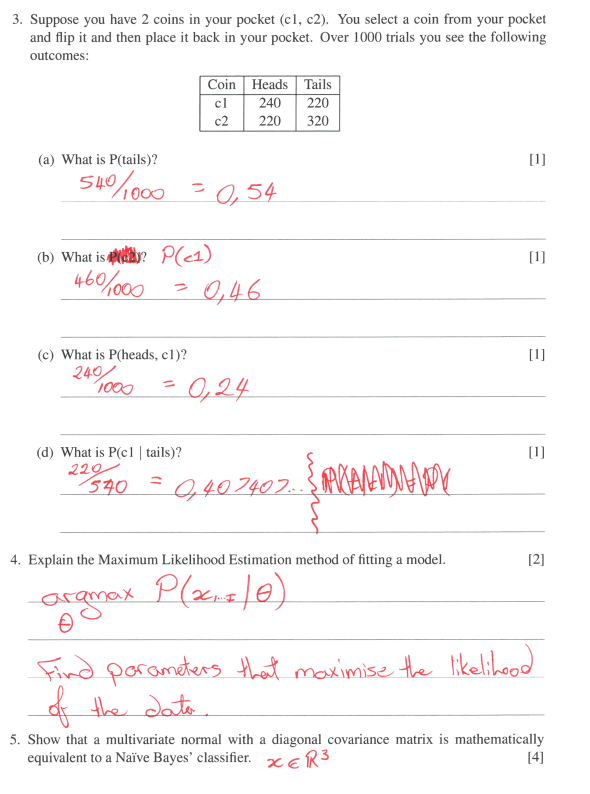 3. Suppose you have 2 coins in your pocket (c1, c2). You select a coin from your pocket
and flip it and then place it back in your pocket. Over 1000 trials you see the following
outcomes:
Coin Heads Tails
c1 240 220
c2 220 320
(a) What is P(tails)? [1]
540/1000 = 0,54
(b) What is ? P(c1) [1]
460/1000 = 0,46
(c) What is P(heads, c1)? [1]
240/1000 = 0,24
(d) What is P(c1 | tails)? [1]
220/540 = 0,407407...
4. Explain the Maximum Likelihood Estimation method of fitting a model. [2]
argmax P(x1...I|θ)
θ
Find parameters that maximise the likelihood
of the data.
5. Show that a multivariate normal with a diagonal covariance matrix is mathematically
equivalent to a Naïve Bayes' classifier. x ∈ ℝ³ [4]